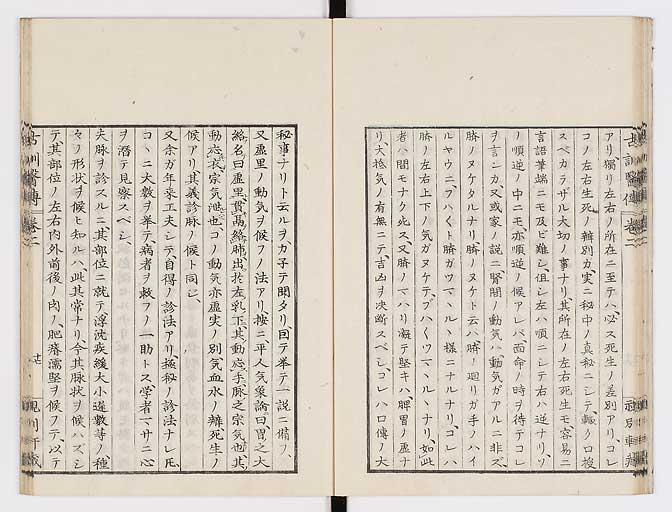 アリ獨リ左右ノ所在ニ至テハ必ス死生ノ差別アリ、コレ
コノ左右生死ノ辨別カ実ニ秘中ノ真秘ニシテ輙ク口授
スベカラザル大切ノ事ナリ其所在ノ左右死生モ容易ニ
言語筆端ニモ及ビ難シ、但シ左ハ順ニシテ右ハ逆ナリ、ソ
ノ順逆ノ中ニモ亦順逆ノ候アレバ面命ノ時ヲ待テコレ
ヲ言ンカ、又或家ノ説ニ腎間ノ動気ハ、動気ガアルニ非ズ、
臍ノヌケタルナリ、臍ノヌケト云ハ、臍ノ廻リガ手ノハイ
ルヤウニ、ブハ〱ト臍ガウマルヽ様ニナルナリ、コレハ
臍ノ左右上下ノ気ガヌケテ、ブハ〱ウマルヽナリ、如此
者ハ間モナク死ス、又臍ノマハリ凝テ堅キハ脾胃ノ虚ナ
リ大抵気ノ有無ニテ、吉凶ヲ决断スベシ、コレハ口傳ノ大
古訓醫傳 巻二
秘事ナリト云ルヲカ子テ聞タリ、回テ挙テ一説ニ備フ、
又虚里ノ動気ヲ候フノ法アリ、按ニ、平人気象論曰、胃之大
絡名曰虚里、貫鬲絡肺出於左乳下、其動応手脉之宗気也、其
動応衣宗気泄也、コノ動気亦虚実ノ別気血水ノ辨死生ノ
候アリ、其義診脉ノ候ト同シ、
又余ガ年来工夫シテ自得ノ診法アリ、極秘ノ診法ナレ𪜈
コヽニ大數ヲ挙テ病者ヲ救フノ一助トス学者一マサニ心
ヲ潜テ見察スベシ、
夫脉ヲ診スルニ、其部位ニ就テ浮沈疾緩大小遲數等ノ種
々ノ形状ヲ候ヒ知ルハ、此其常ナリ、今其脉状ヲ候ハズシ
テ其部位ノ左右内外前後ノ肉ノ肥瘠濡堅ヲ候フテ、以テ
古訓醫傳 巻二